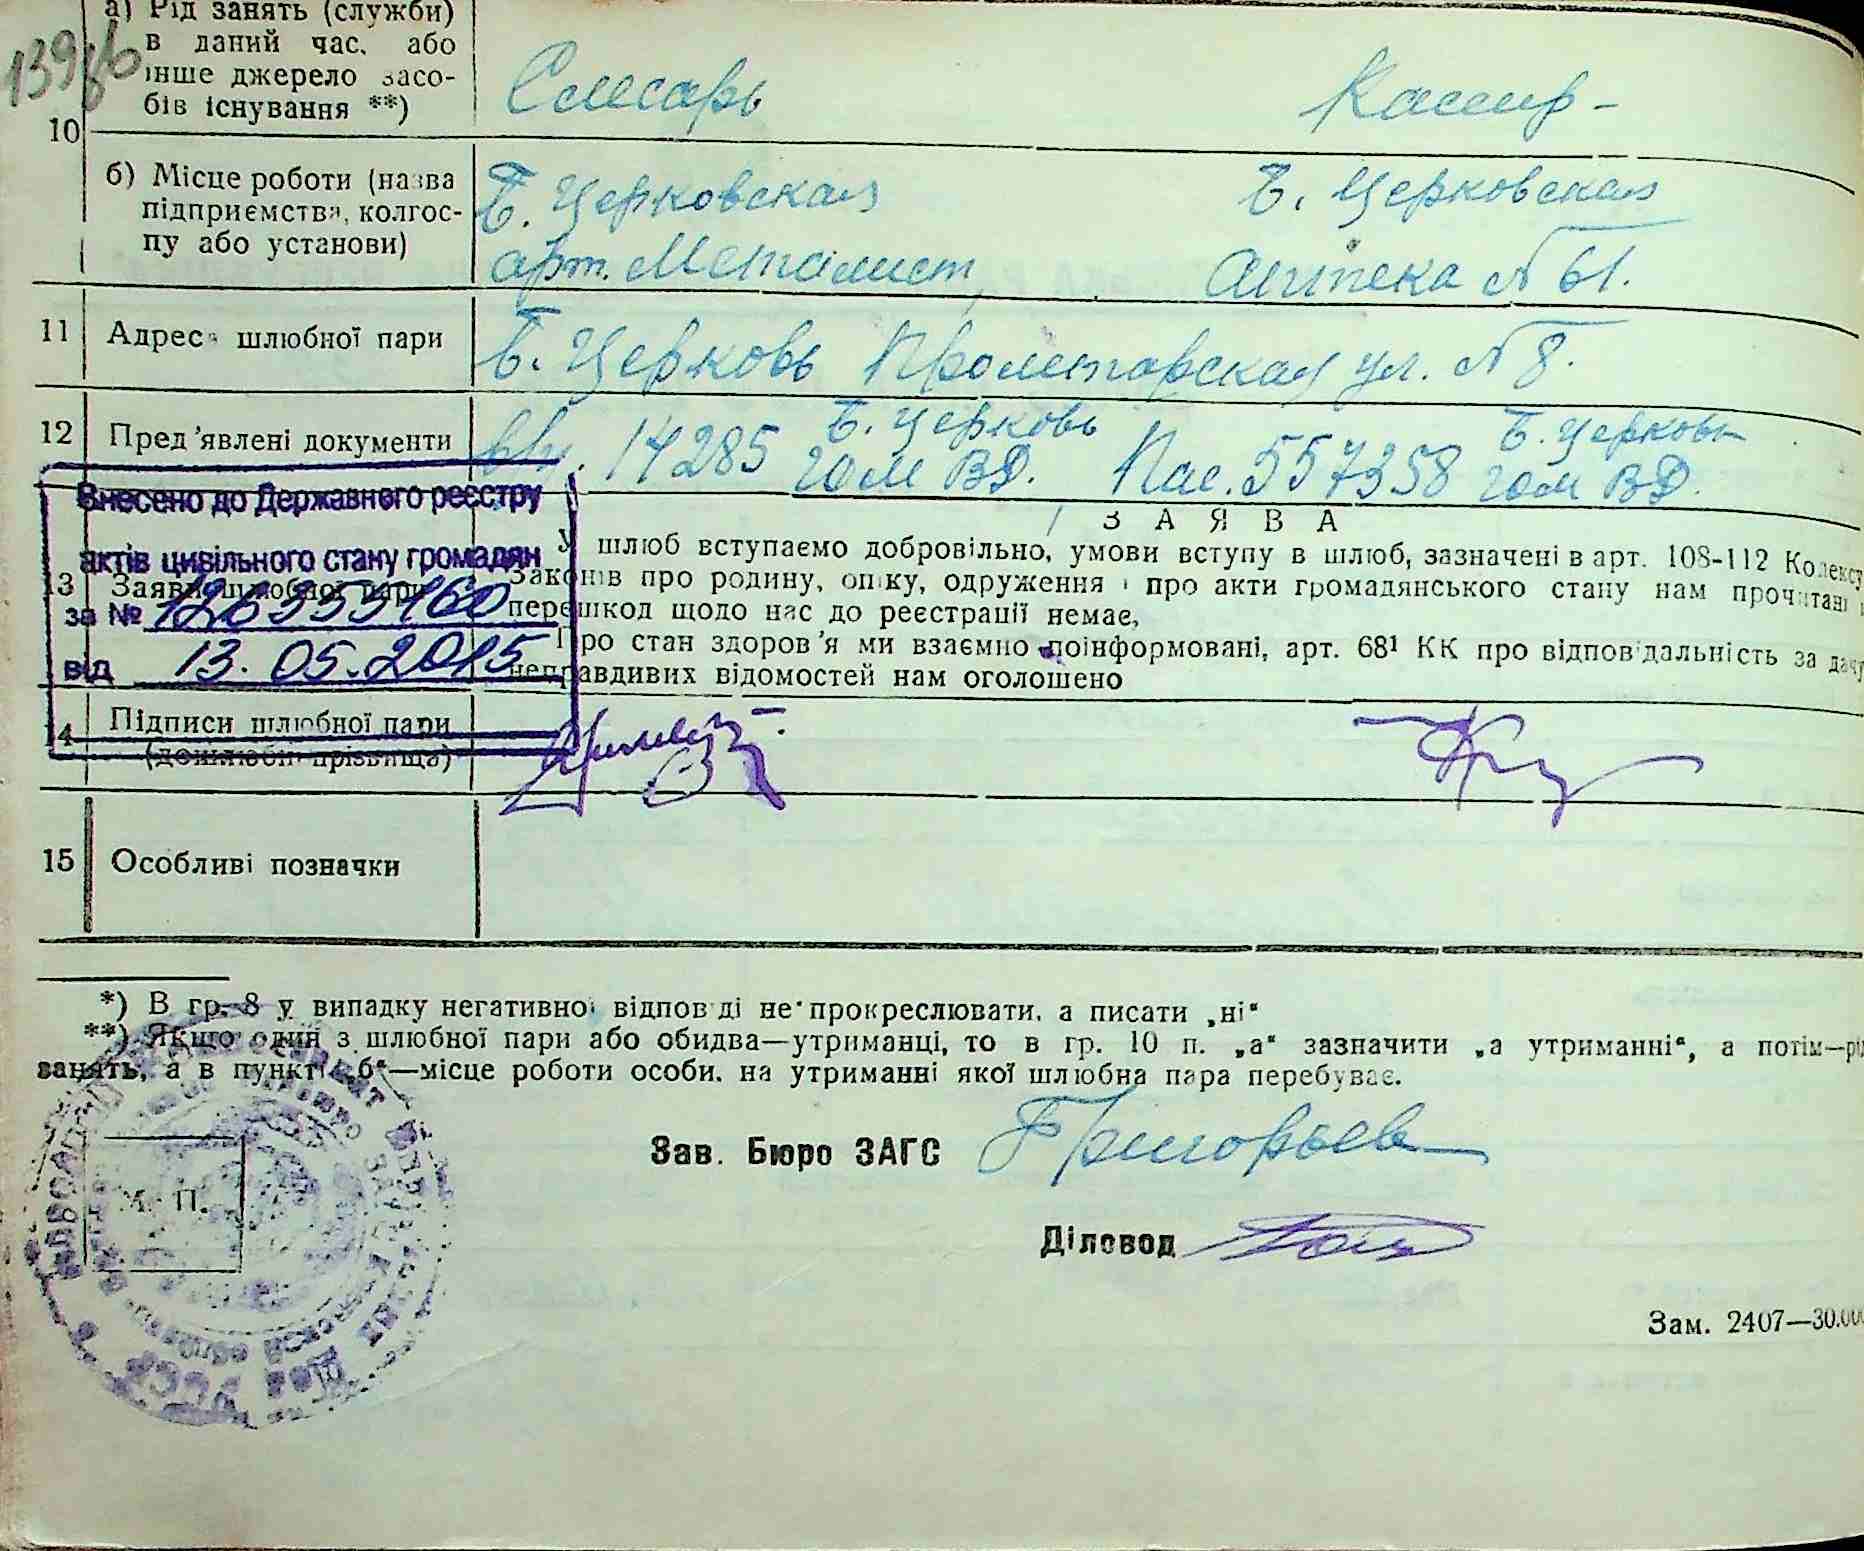 139 зв
а) Рід занять (служби)
в даний час, або
інше джерело засо-
бів існування **)
Слесарь Кассир -
10
б) Місце роботи (назва
підприємства, колгос-
пу або установи)
Б. Церковская Б. Церковская
арт. Металист, Аптека № 61.
11 Адреса шлюбної пари
Б. Церковь Пролетарская ул. № 8.
12 Пред'явлені документи
14285 Б. Церковь гом ВД. Пас. 557358 Б. Церковь гом ВД.
Внесено до Державного реєстру
актів цивільного стану громадян
за №
від 13.05.2015
ЗАЯВА
13 Заява шлюбної пари
У шлюб вступаємо добровільно, умови вступу в шлюб, зазначені в арт. 108-112 Кодексу
Законів про родину, опіку, одруження і про акти громадянського стану нам прочитані і
перешкод щодо нас до реєстрації немає,
Про стан здоров'я ми взаємно поінформовані, арт. 68¹ КК про відповідальність за дачу
неправдивих відомостей нам оголошено
14 Підписи шлюбної пари
(дошлюбні прізвища)
15 Особливі позначки
*) В гр. 8 у випадку негативної відповіді не прокреслювати, а писати „ні“
**) Якщо один з шлюбної пари або обидва—утриманці, то в гр. 10 п. „а“ зазначити „а утриманні“, а потім—рід
занять, а в пункті „б“—місце роботи особи, на утриманні якої шлюбна пара перебуває.
Зав. Бюро ЗАГС Григорьев
М. П.
Діловод
УССР
Зам. 2407—30.000